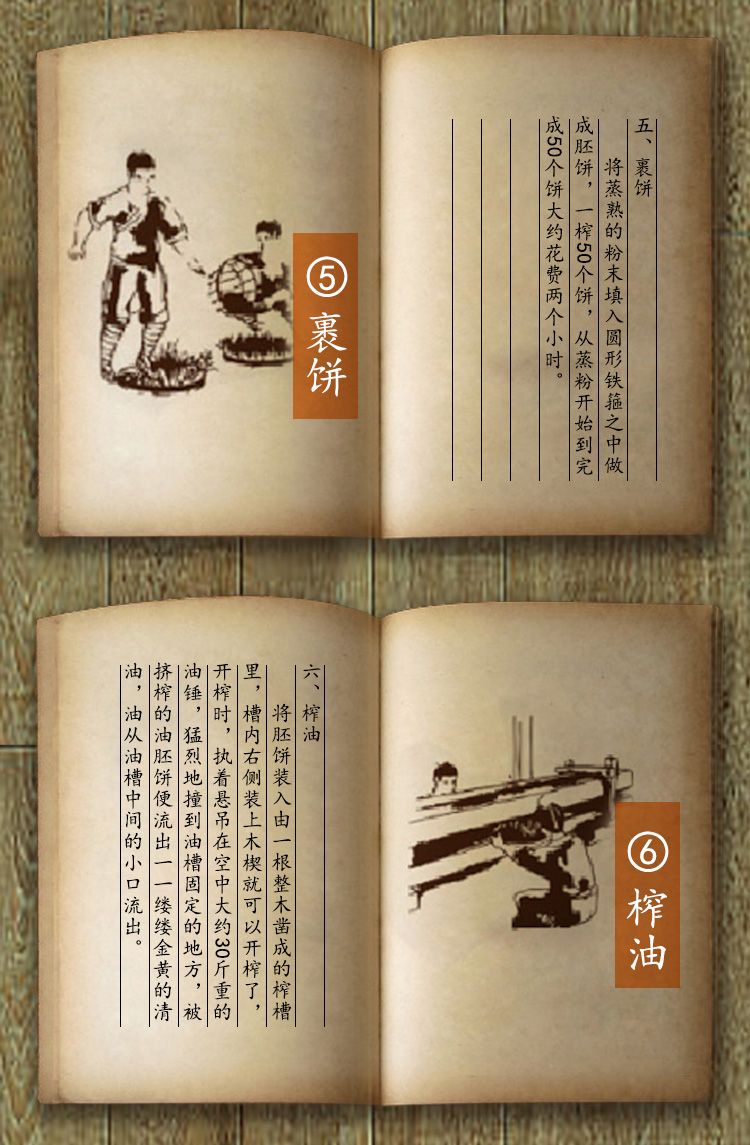 ⑤裹饼
五、裹饼
将蒸熟的粉末填入圆形铁箍之中做
成胚饼，一榨50个饼，从蒸粉开始到完
成50个饼大约花费两个小时。
六、榨油
将胚饼装入由一根整木凿成的榨槽
里，槽内右侧装上木楔就可以开榨了，
开榨时，执着悬吊在空中大约30斤重的
油锤，猛烈地撞到油槽固定的地方，被
挤榨的油胚饼便流出一一缕缕金黄的清
油，油从油槽中间的小口流出。
⑥榨油